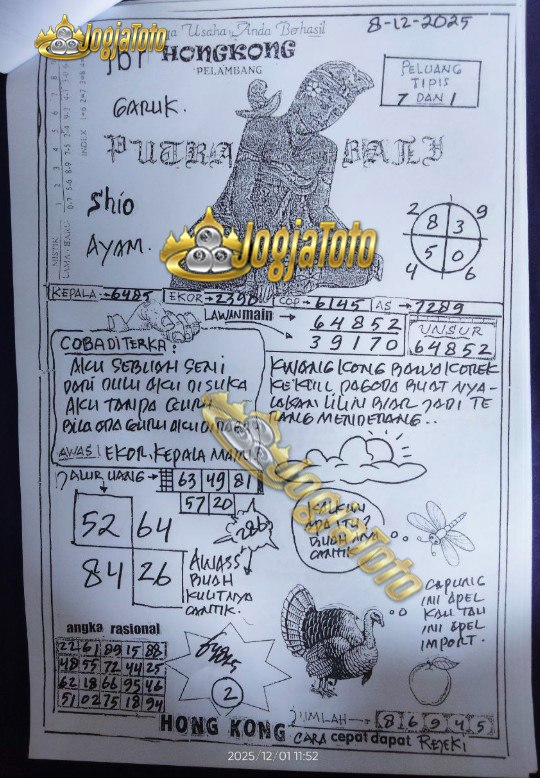 Usaha, Anda Berhasil
8-12-2025
JogjaToto
HONGKONG
PELAMBANG
PELUANG
TIPIS
7 DAN 1
GARUK.
PUTRA BALI
INDEX
MISTIK
Shio
AYAM.
JogjaToto
2 9
8 3
5 0
4 6
KEPALA → 6485 EKOR → 2390 COP → 6145 AS → 7289
LAWAN main
64852
39170
UNSUR
64852
COBA DITERKA:
AKU SEBUAH SENI
DARI DULU AKU DI SUKA
AKU TANPA GURU
BILA ADA GURU AKU
AWAS! EKOR, KEPALA
KWANG KONG BAWA KOREK
PAGODA BUAT NYA-
LAKAN LILIN BIAR JADI TE
RANG MENDERANG..
JogjaToto
JALUR UANG →
63 49 81
57 20
286
52 64
84 26
AWASS
BUAH
KULITNYA
CANTIK.
KALKUN
APA ITU?
BUAH NYA
CANTIK
CAPUNG
INI APEL
KAU TAU
INI APEL
IMPORT.
angka rasional
22 61 89 15 88
48 55 72 44 25
62 18 66 95 46
51 02 75 18 94
2
JUMLAH → 8 6 9 4 5
HONG KONG CARA cepat dapat REJEKI
2025/12/01 11:52